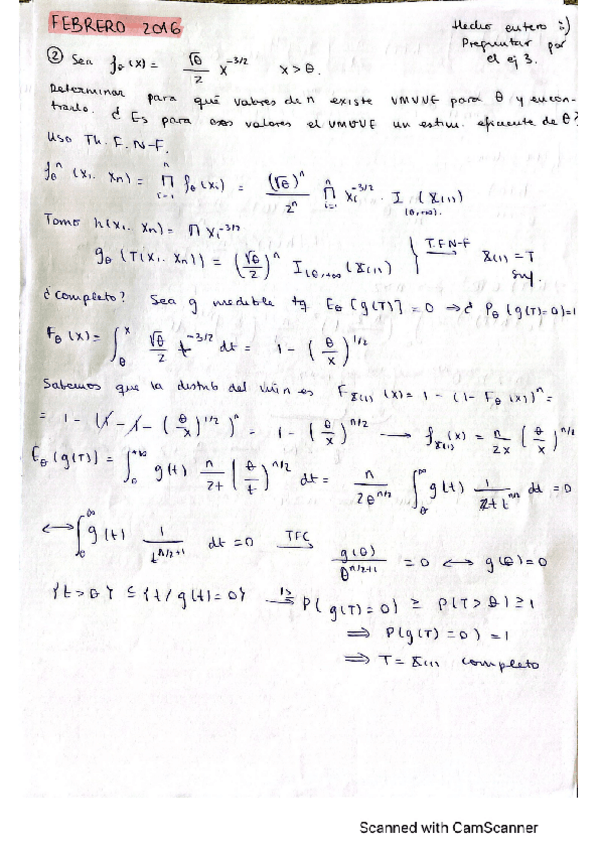 FEBRERO 2016
Hecho entero :)
Preguntar por
el ej 3.
② Sea f_θ(x) = √θ/2 x^{-3/2} x > θ.
Determinar para qué valores de n existe UMVUE para θ y encon-
trarlo. ¿Es para esos valores el UMVUE un estim. eficiente de θ?
Uso Th. F. N-F.
f_θ^n (x₁.. x_n) = ∏_{i=1}^n f_θ(x_i) = (√θ)^n/2^n ∏_{i=1}^n x_i^{-3/2} · I_{(θ,+∞)} (X_{(1)})
Tomo h(x₁.. x_n) = ∏ x_i^{-3/2}
g_θ (T(x₁.. x_n)) = (√θ/2)^n I_{(θ,+∞)} (X_{(1)}) } T.F.N-F → X_{(1)} = T suf.
¿Completo? Sea g medible tq E_θ [g(T)] = 0 → ¿ P_θ (g(T)=0)=1
F_θ(x) = ∫_θ^x √θ/2 t^{-3/2} dt = 1 - (θ/x)^{1/2}
Sabemos que la distrib del min es F_{X_{(1)}} (x) = 1 - (1 - F_θ(x))^n =
= 1 - (1 - 1 - (θ/x)^{1/2})^n = 1 - (θ/x)^{n/2} → f_{X_{(1)}}(x) = n/2x (θ/x)^{n/2}
E_θ [g(T)] = ∫_θ^{+∞} g(t) n/2t (θ/t)^{n/2} dt = n/2θ^{n/2} ∫_θ^∞ g(t) dt = 0
↔ ∫_θ^∞ g(t) 1/t^{n/2+1} dt = 0 TFC → g(θ)/θ^{n/2+1} = 0 ↔ g(θ) = 0
{t > θ} ⊆ {t / g(t) = 0} → P(g(T) = 0) ≥ P(T > θ) ≥ 1
⟹ P(g(T) = 0) = 1
⟹ T = X_{(1)} completo
Scanned with CamScanner